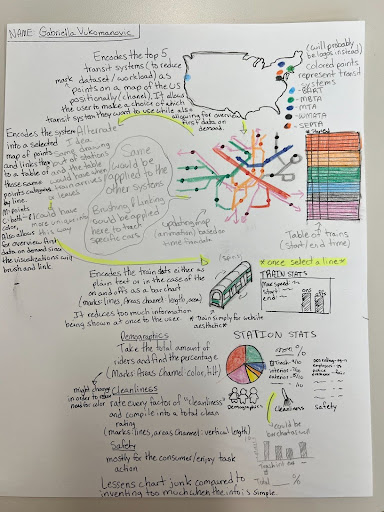 NAME: Gabriella Vukomanovic
Encodes the top 5
transit systems (to reduce
mark dataset/workload) as
points on a map of the US
positionally (channel). It allows
the user to make a choice of which
transit system they want to use while also
allowing for overview
first/data on
demand.
(will probably
be logos instead)
colored points
represent transit
systems
-BART
-MBTA
-MTA
-WMATA
-SEPTA
Encodes the system
into a selected
map of points
and links they
to a table of
those same
points categorized
by line.
M-points
Also allows
for overview first
data on demand since
the visualizations will
brush and link
Alternate
Idea
drawing
out of stations
would have
train arrives
& leaves
Could have
more unique
colors
this way
Same
would be
applied to the
other systems
Brushing & linking
would be applied
here to track
specific cars.
updating map
(animation) based on
time/data
Table of trains
(start/end time)
Encodes the train stats either as
plain text or in the case of the
on and offs as a bar chart
(marks: lines, Areas channel: length, area)
It reduces too much information
being shown at once to the user
* once select a line *
TRAIN STATS
Max speed
start
end:
* Train simply for website
aesthetic *
Demographics
Take the total amount of
riders and find the percentage
(Marks: Areas Channel: color, tilt)
might change
in order to reduce
need for color
Cleanliness
rate every factor of "cleanliness"
and compile into a total clean
rating
(marks: lines, areas Channel: vertical length)
Safety
mostly for the consumer/enjoy task
action
Lessens chart junk compared to
inventing too much when the info is simple.
STATION STATS
Demographics
Cleanliness
Safety
would be
barchart as well
Total %